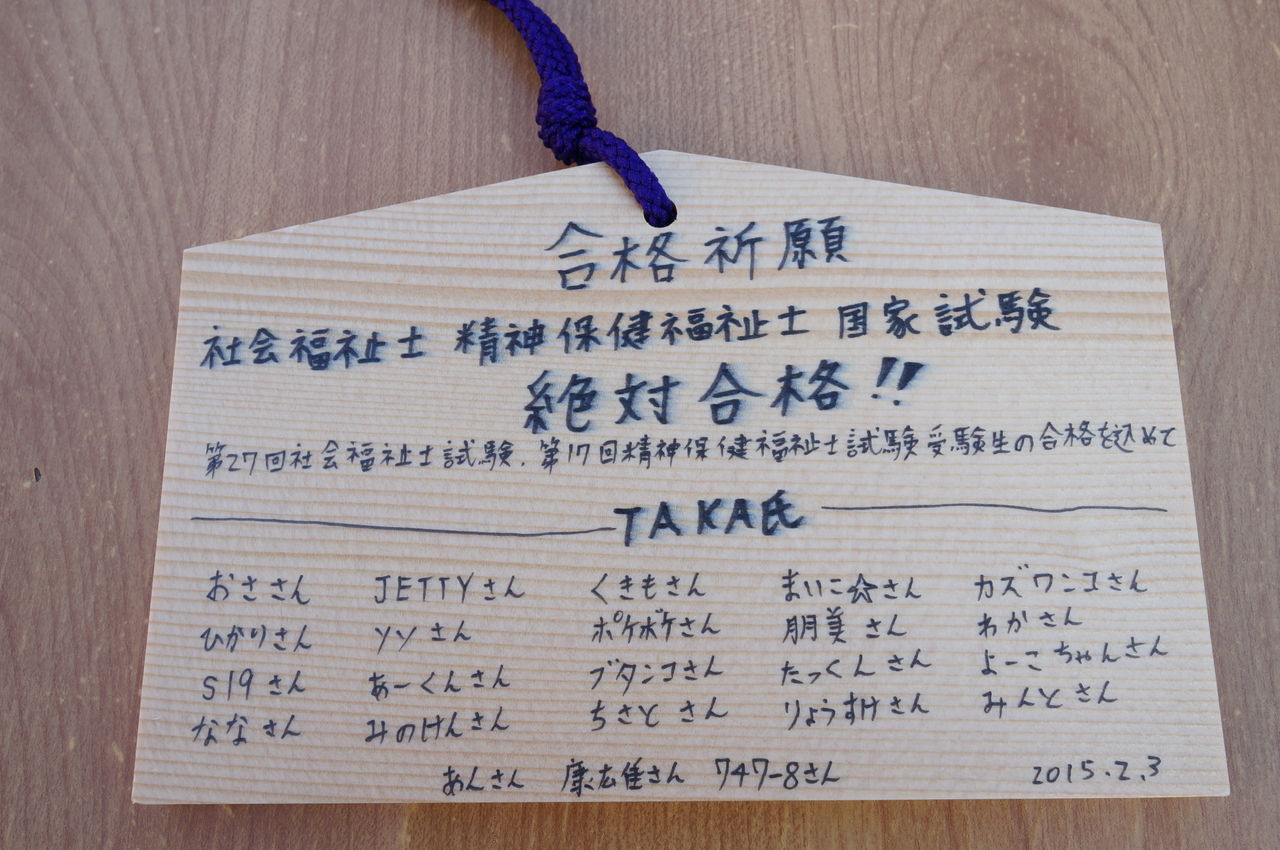 合格祈願
社会福祉士 精神保健福祉士 国家試験
絶対合格!!
第27回社会福祉士試験.第17回精神保健福祉士試験受験生の合格を込めて
TAKA氏
おささん JETTYさん くきもさん まいこ☆さん カズワンコさん
ひかりさん ソソさん ポケポケさん 朋美さん わかさん
S19さん あーくんさん ブタンコさん たっくんさん よーこちゃんさん
ななさん みのけんさん ちさとさん りょうすけさん みんとさん
あんさん 康広佳さん 747-8さん 2015.2.3